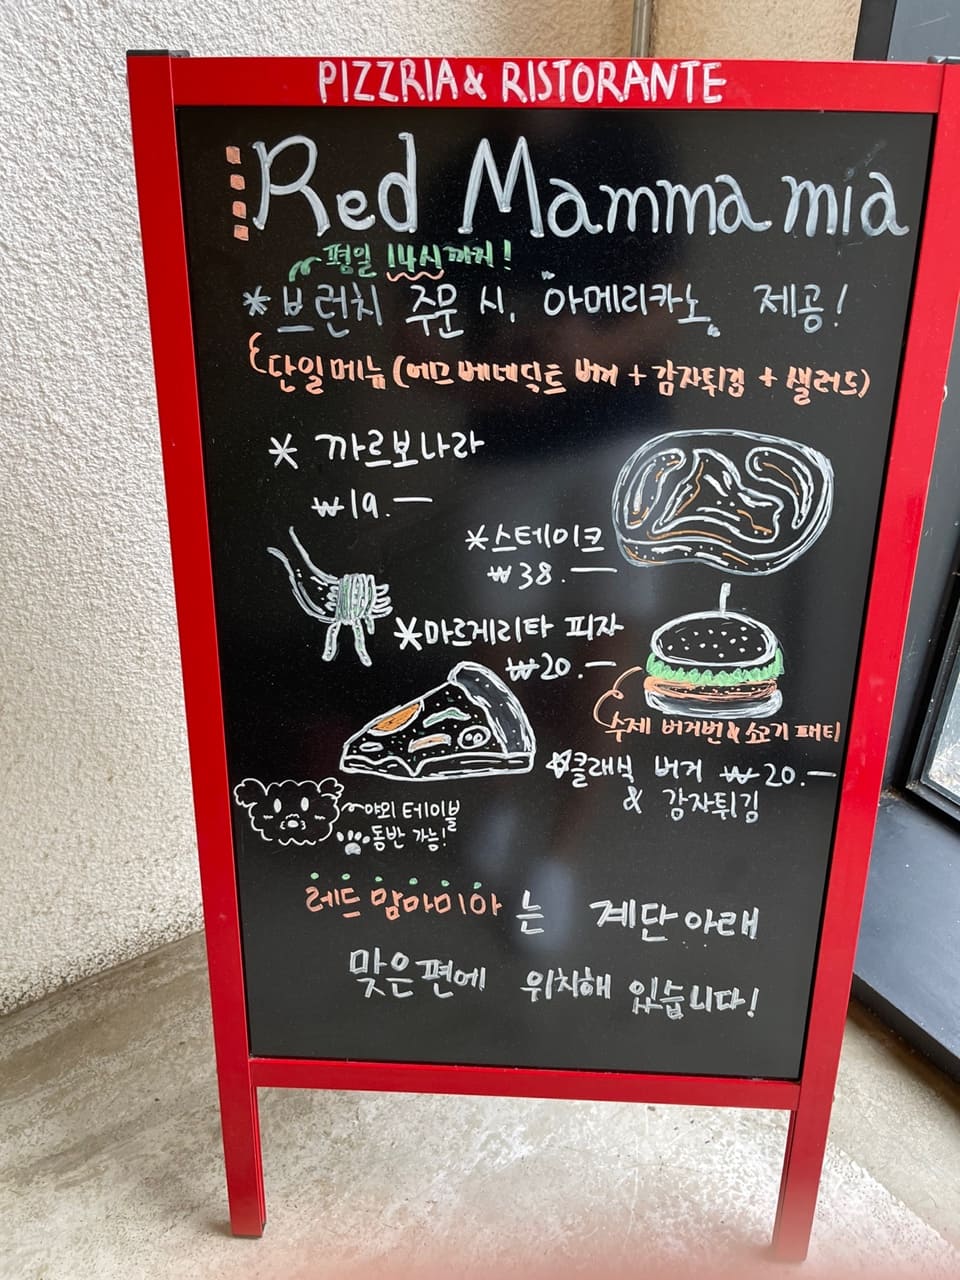 PIZZRIA & RISTORANTE
Red Mamma mia
평일 14시까지!
*브런치 주문 시, 아메리카노 제공!
단일메뉴 (에그베네딕트 버거 + 감자튀김 + 샐러드)
* 까르보나라
₩19.—
*스테이크
₩38.—
*마르게리타 피자
₩20.—
수제 버거번 & 소고기 패티
*클래식 버거 ₩20.—
& 감자튀김
야외 테이블
동반 가능!
레드 맘마미아 는 계단 아래
맞은편에 위치해 있습니다!